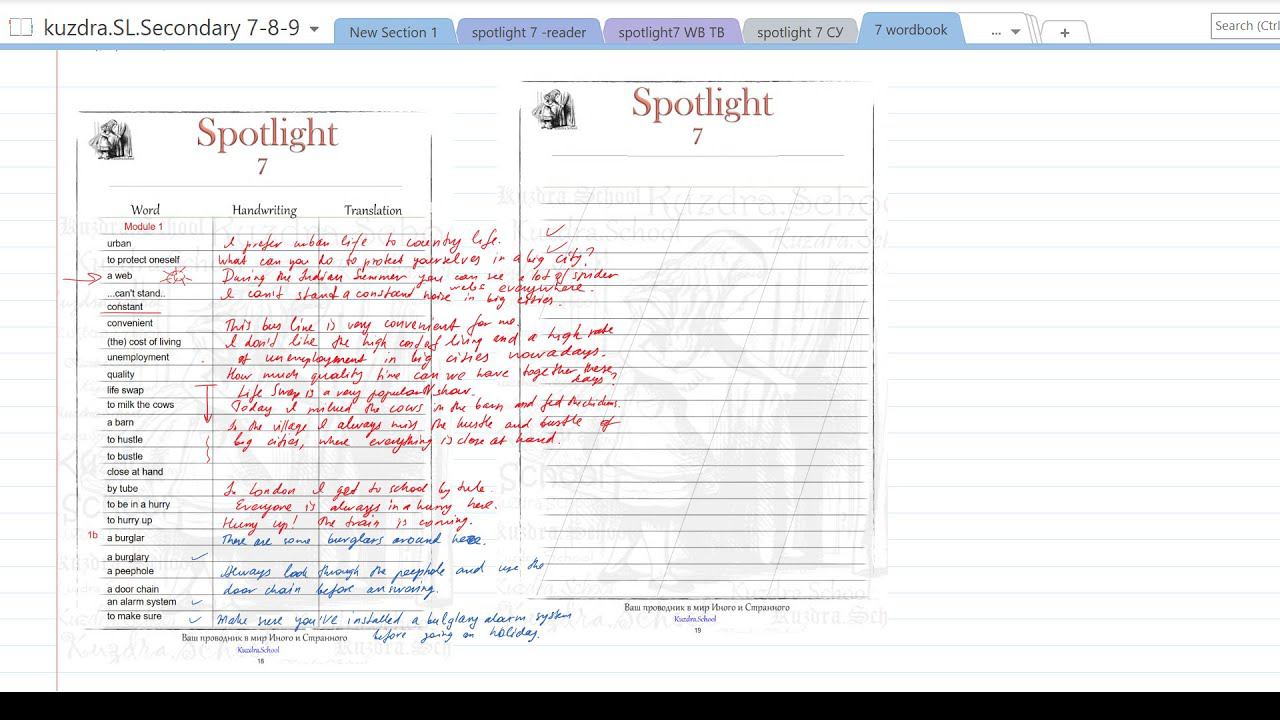 kuzdra.SL.Secondary 7-8-9
New Section 1
spotlight 7 -reader
spotlight7 WB TB
spotlight 7 СУ
7 wordbook
...
+
Search (Ctrl
Spotlight
7
Word Handwriting Translation
Module 1
urban I prefer urban life to country life.
to protect oneself What can you do to protect yourselves in a big city?
a web During the Indian Summer you can see a lot of spider
webs everywhere.
...can't stand.. I can't stand a constand noise in big cities.
constant
convenient This bus line is very convenient for me.
(the) cost of living I don't like the high cost of living and a high rate
unemployment of unemployment in big cities nowadays.
quality How much quality time can we have together these
days?
life swap Life Swap is a very popular TV show.
to milk the cows Today I milked the cows in the barn and fed the chickens.
a barn In the village I always miss the hustle and bustle of
to hustle big cities, where everything is close at hand.
to bustle
close at hand
by tube In London I get to school by tube.
to be in a hurry Everyone is always in a hurry here.
to hurry up Hurry up! The train is coming.
1b a burglar There are some burglars around here.
a burglary
a peephole Always look through the peephole and use the
a door chain door chain before answering.
an alarm system
to make sure Make sure you've installed a bulglary alarm system
before going on holiday.
Ваш проводник в мир Иного и Странного
Kuzdra.School
18
Spotlight
7
Kuzdra.School
Ваш проводник в мир Иного и Странного
Kuzdra.School
19